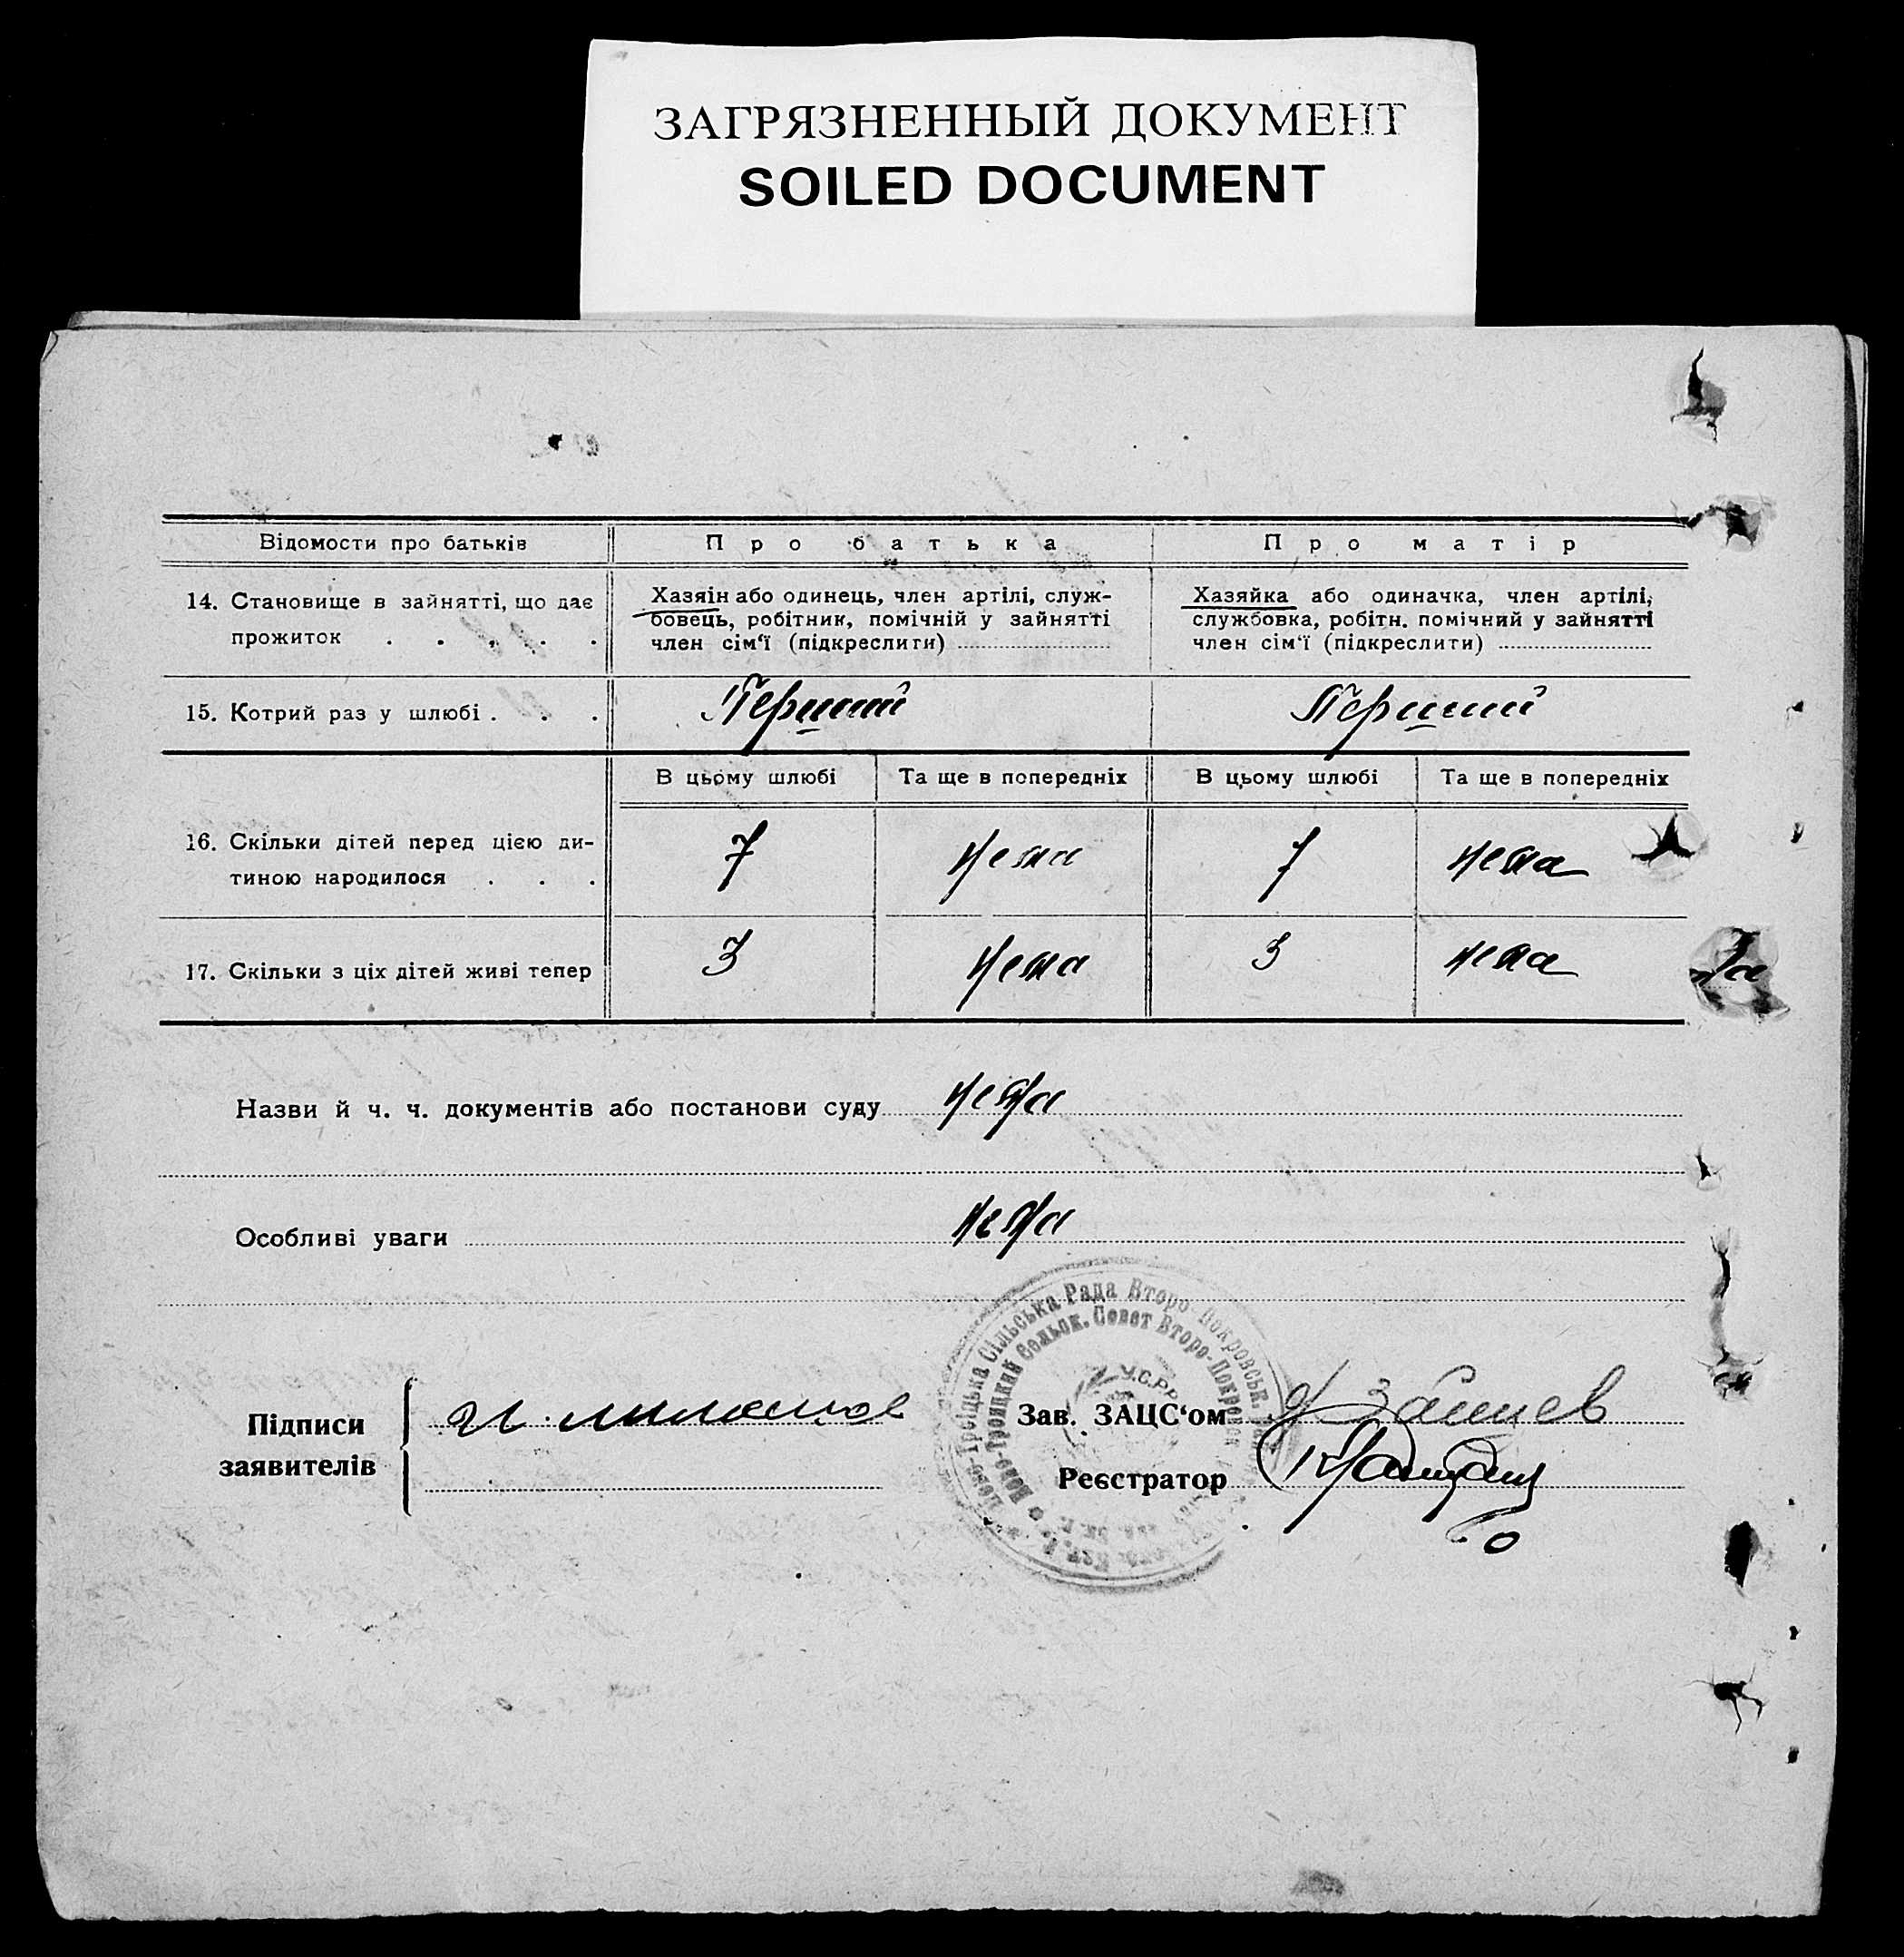 ЗАГРЯЗНЕННЫЙ ДОКУМЕНТ
SOILED DOCUMENT
Відомости про батьків
Про батька
Про матір
14. Становище в зайнятті, що дає
прожиток . . . . .
Хазяїн або одинець, член артілі, служ-
бовець, робітник, помічній у зайнятті
член сім‘ї (підкреслити)
Хазяйка або одиначка, член артілі,
службовка, робітн. помічний у зайнятті
член сім‘ї (підкреслити)
15. Котрий раз у шлюбі . . .
Перший
Перший
В цьому шлюбі
Та ще в попередніх
В цьому шлюбі
Та ще в попередніх
16. Скільки дітей перед цією ди-
тиною народилося . . .
7
нема
7
нема
17. Скільки з ціх дітей живі тепер
3
нема
3
нема
Назви й ч. ч. документів або постанови суду нема
Особливі уваги нема
Ново-Троїцька Сільська Рада Второ-Покровськ.
Ново-Троицкий Сельск. Совет Второ-Покровск
У.С.Р.Р.
Підписи
заявителів
Зав. ЗАЦС‘ом
Реєстратор